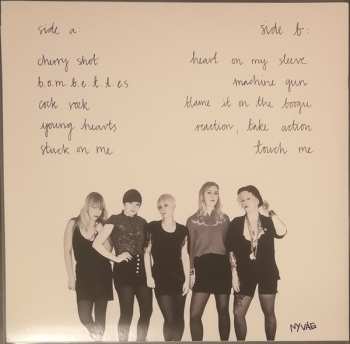 side a
cherry shot
b.o.m.b.e.t.t.e.s
cock rock
young hearts
stuck on me
side b:
heart on my sleeve
machine gun
blame it on the boogie
reaction, take action
touch me
NYVÅG